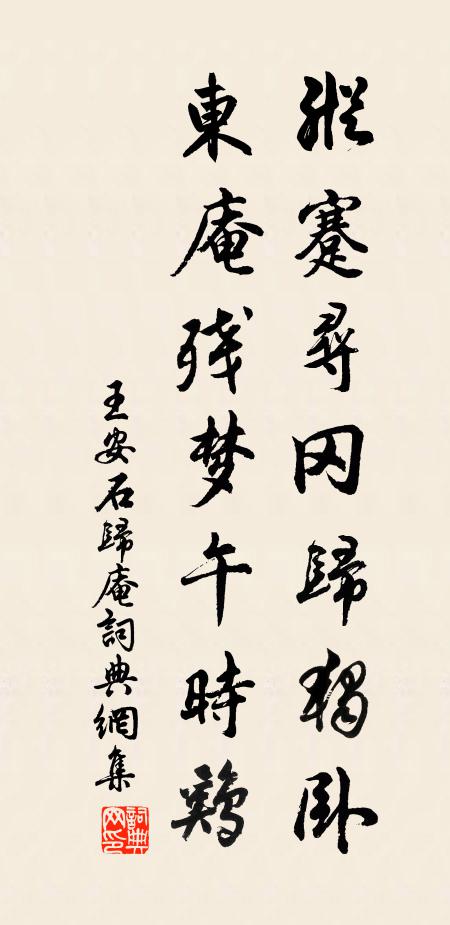 縱蹇尋冈歸獨卧
東庵残梦午時鷄
王安石歸庵詞典網集
詞典网印